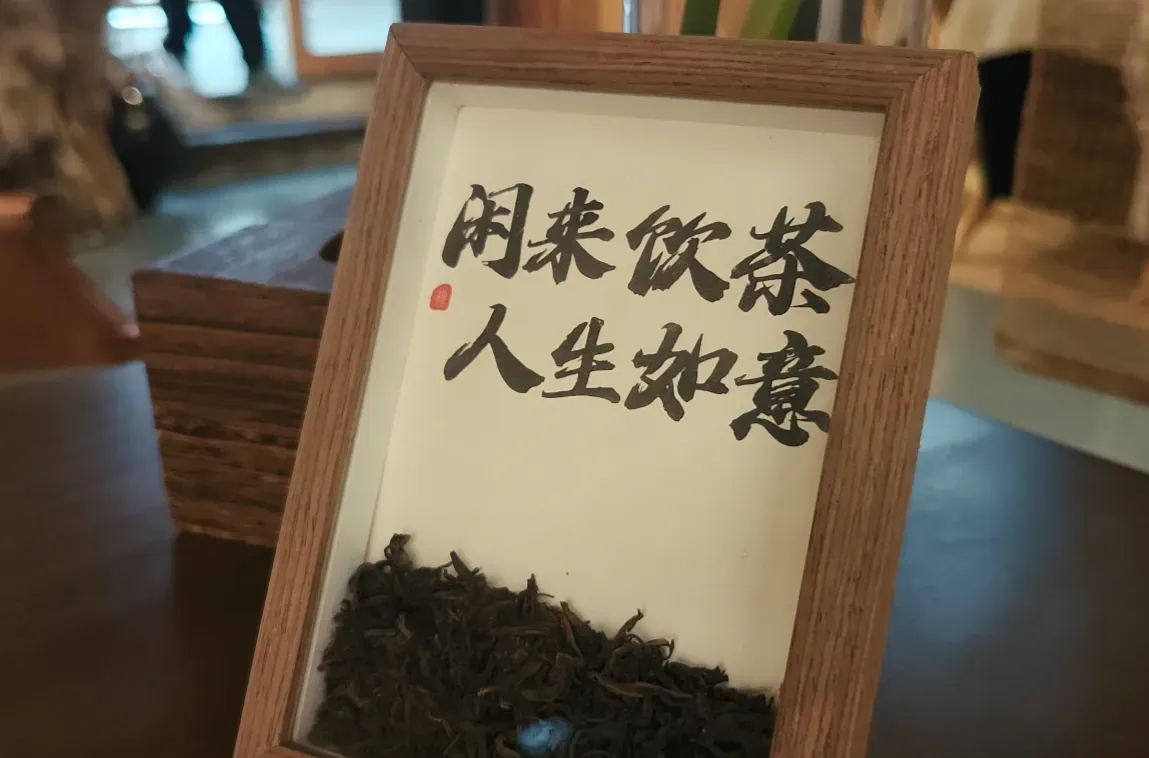 闲来饮茶
人生如意